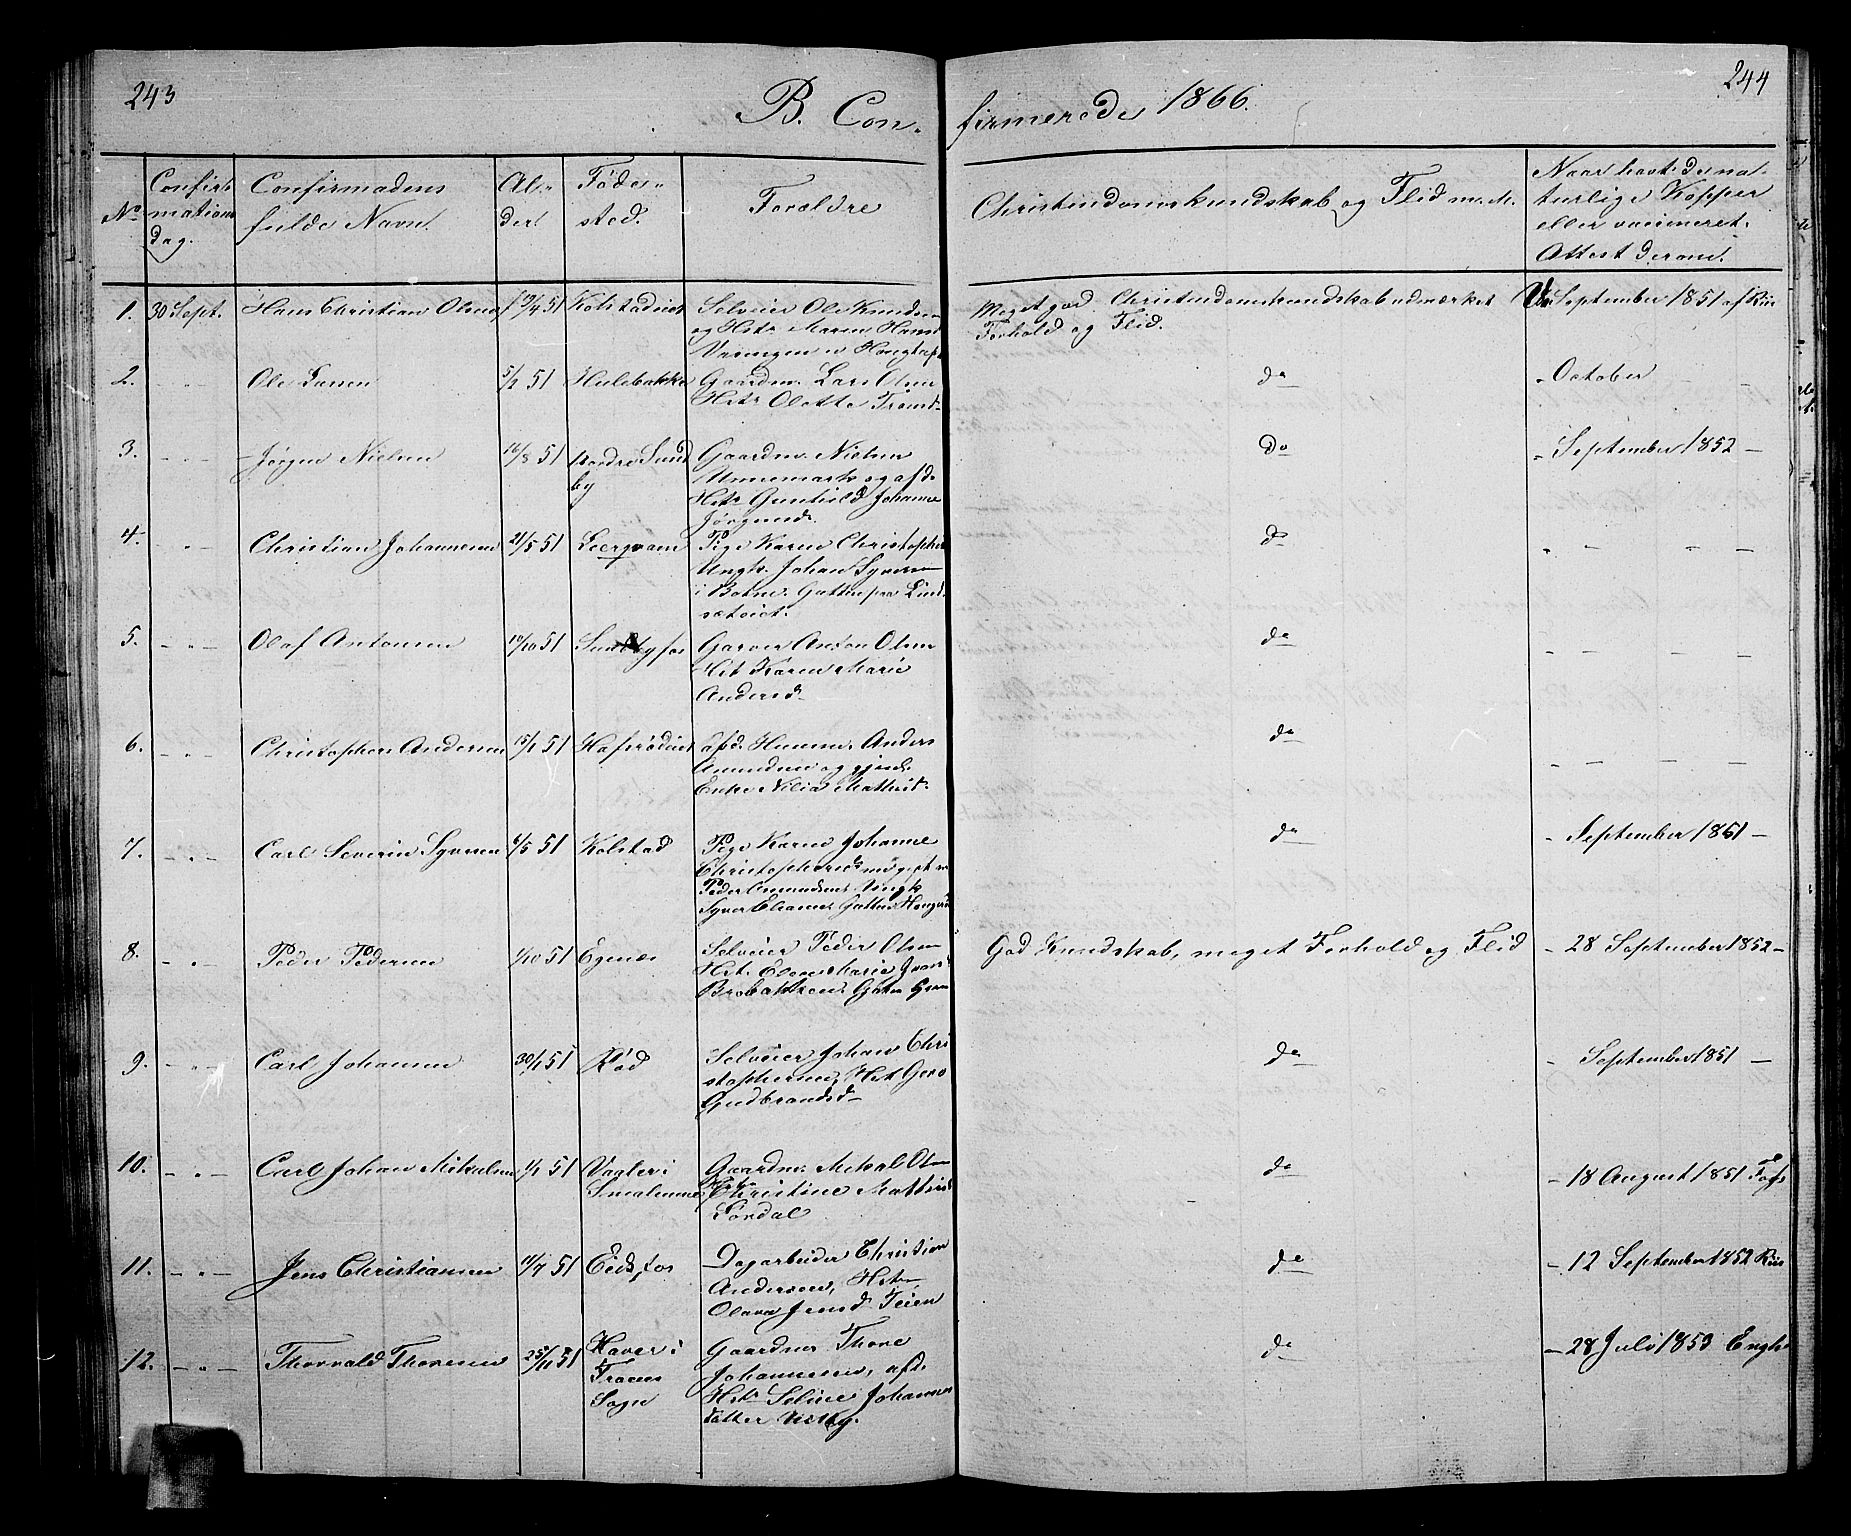 243
244
B. Con- firmerede 1866.
No
Confirmations dag.
Confirmandens fulde Navn.
Alder
Føde-sted.
Forældre
Christendomskundskab og Flid m. M.
Naar havt de naturlige Kopper eller vaccineret. Attest derom.
1. 30 Sept. Hans Christian Olsen 51 Kolstadeiet
Selveier Ole Knudsen
og Hstr Maren Hansd
Meget god Christendomskundskab udmærket
Forhold og Flid.
September 1851 af
2. - " - Ole Larsen 5/2 51 Hulebakke
Gaardm. Lars Olsen
Hstr Olette
do
- October - -
3. - " - Jørgen Nielsen 16/8 51 Nordre Sundby
Gaardm. Nielsen
Unnemark og afd.
Hstr Gunhild Johanne
Jørgensd.
do
- September 1852 -
4. - " - Christian Johannesen 21/5 51 Leergraven
Pige Karen Christophers
Ungk. Johan Syversen
i Botne.
do
" - - -
5. - " - Olaf Antonsen 10/10 51 Sundbyfos
Garver Anton Olsen
Hst Karen Marie
Andersd.
do
- - - -
6. - " - Christopher Andersen 15/1 51 Hafsrødeiet
afd. Huusm. Anders
Amundsen og gjenl.
Enke Nilia Mathisd.
do
- - - -
7. - " - Carl Severin Syversen 51 Kolstad
Pige Karen Johanne
Christophersd. nu gift m
Peder Amundsen Ungk
Syver
do
- September 1851 -
8. - " - Peder Pedersen 1/10 51 Egenæs
Selveier Peder Olsen
Hst. Elen Marie
God Kundskab, meget Forhold og Flid
- 28 September 1852 -
9. - " - Carl Johansen 30/1 51 Rød
Selveier Johan Chri
stophersen, Hst
Gudbrandsd.
do
- September 1851 -
10. - " - Carl Johan Mikalsen 1/1 51 Vagler i
Gaardm. Mikal Olsen
Christine Mathisd
do
- 18 August 1851
11. - " - Jens Christiansen 51 Eidsfos
Dagarbeider Christian
Andersen, Hst.
Olava Jensd. Teien
do
- 12 September 1852
12. - " - Thorvald Thoresen 25/11 51 Haver i
Sogn
Gaardm. Thore
Johannesen, afd.
Hstr Seline Johannes
datter
do
- 28 Juli 1853